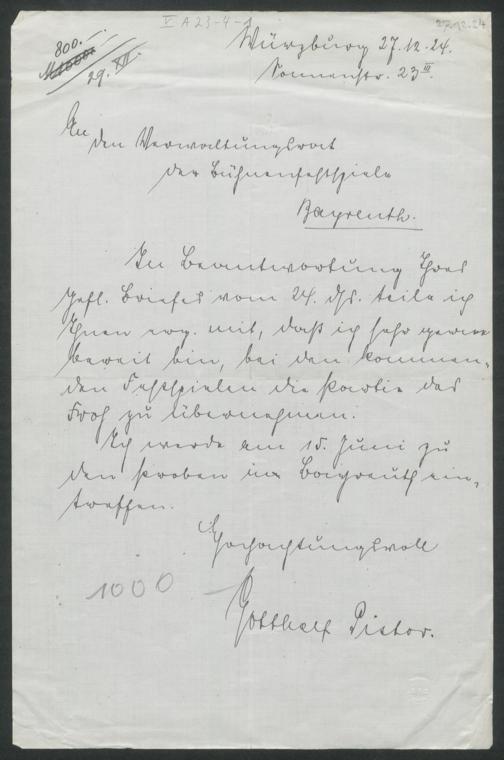 V A 23-4-1
27.12.24
800.-
M 1000.-
29. XII.
Würzburg 27.12.24.
Sonnenstr. 23 III.
An
den Verwaltungsrat
der Bühnenfestspiele
Bayreuth.
In Beantwortung Ihres
gefl. Briefes vom 24. ds. teile ich
Ihnen erg. mit, daß ich sehr gerne
bereit bin, bei den kommen-
den Festspielen die Partie des
Froh zu übernehmen.
Ich werde am 15. Juni zu
den Proben in Bayreuth ein-
treffen.
Hochachtungsvoll
1000 -
Gotthelf Pistor.